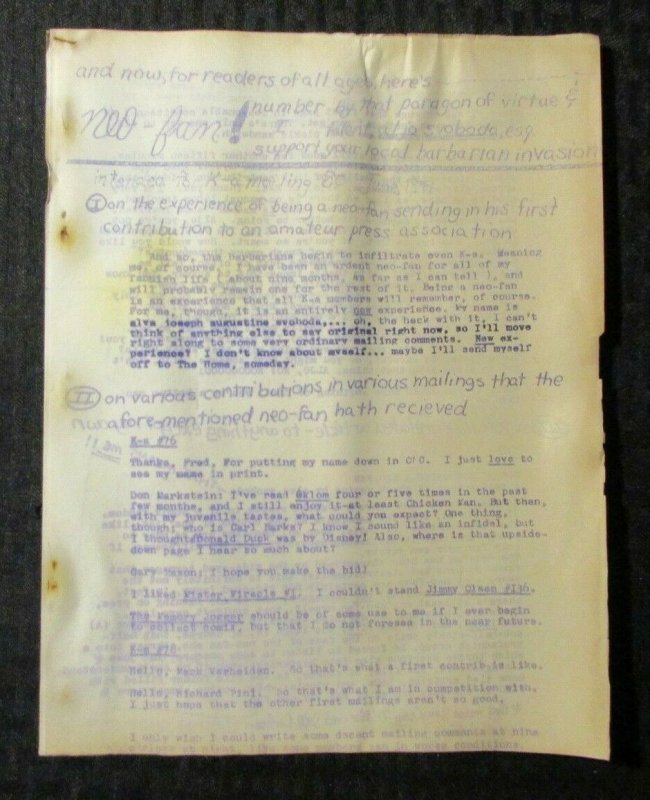 and now, for readers of all ages, here's
number by that paragon of virtue &
neo-fan! 1 talent, alva svoboda, esq.
support your local barbarian invasion
intended for K-a mailing
I on the experience of being a neo-fan sending in his first
contribution to an amateur press association
And so, the barbarians begin to infiltrate even K-a. Meaning
me, of course. I have been an ardent neo-fan for all of my
fannish life ( about nine months, as far as I can tell ), and
will probably remain one for the rest of it. Being a neo-fan
is an experience that all K-a members will remember, of course.
For me, though, it is an entirely new experience. My name is
alva joseph augustine svoboda,... oh, the heck with it, I can't
think of anything else to say original right now, so I'll move
right along to some very ordinary mailing comments. New ex-
perience? I don't know about myself... maybe I'll send myself
off to The Home, someday.
II on various contributions in various mailings that the
afore-mentioned neo-fan hath recieved
K-a #76
Thanks, Fred, For putting my name down in O/O. I just love to
see my name in print.
Don Markstein: I've read øklom four or five times in the past
few months, and I still enjoy it-at least Chicken Man. But then,
with my juvenile tastes, what could you expect? One thing,
though; who is Carl Barks? I know I sound like an infidel, but
I thought Donald Duck was by Disney! Also, where is that upside-
down page I hear so much about?
Gary Mason: I hope you make the bid!
I liked Mister Miracle #1. I couldn't stand Jimmy Olsen #136.
The Memory Jogger should be of some use to me if I ever begin
to collect comix, but that I do not foresee in the near future.
Kam #78
Hello, Mark Verheiden. So that's what a first contrib is like.
Hello, Richard Pini. So that's what I am in competition with.
I just hope that the other first mailings aren't so good.
I only wish I could write some decent mailing comments at nine